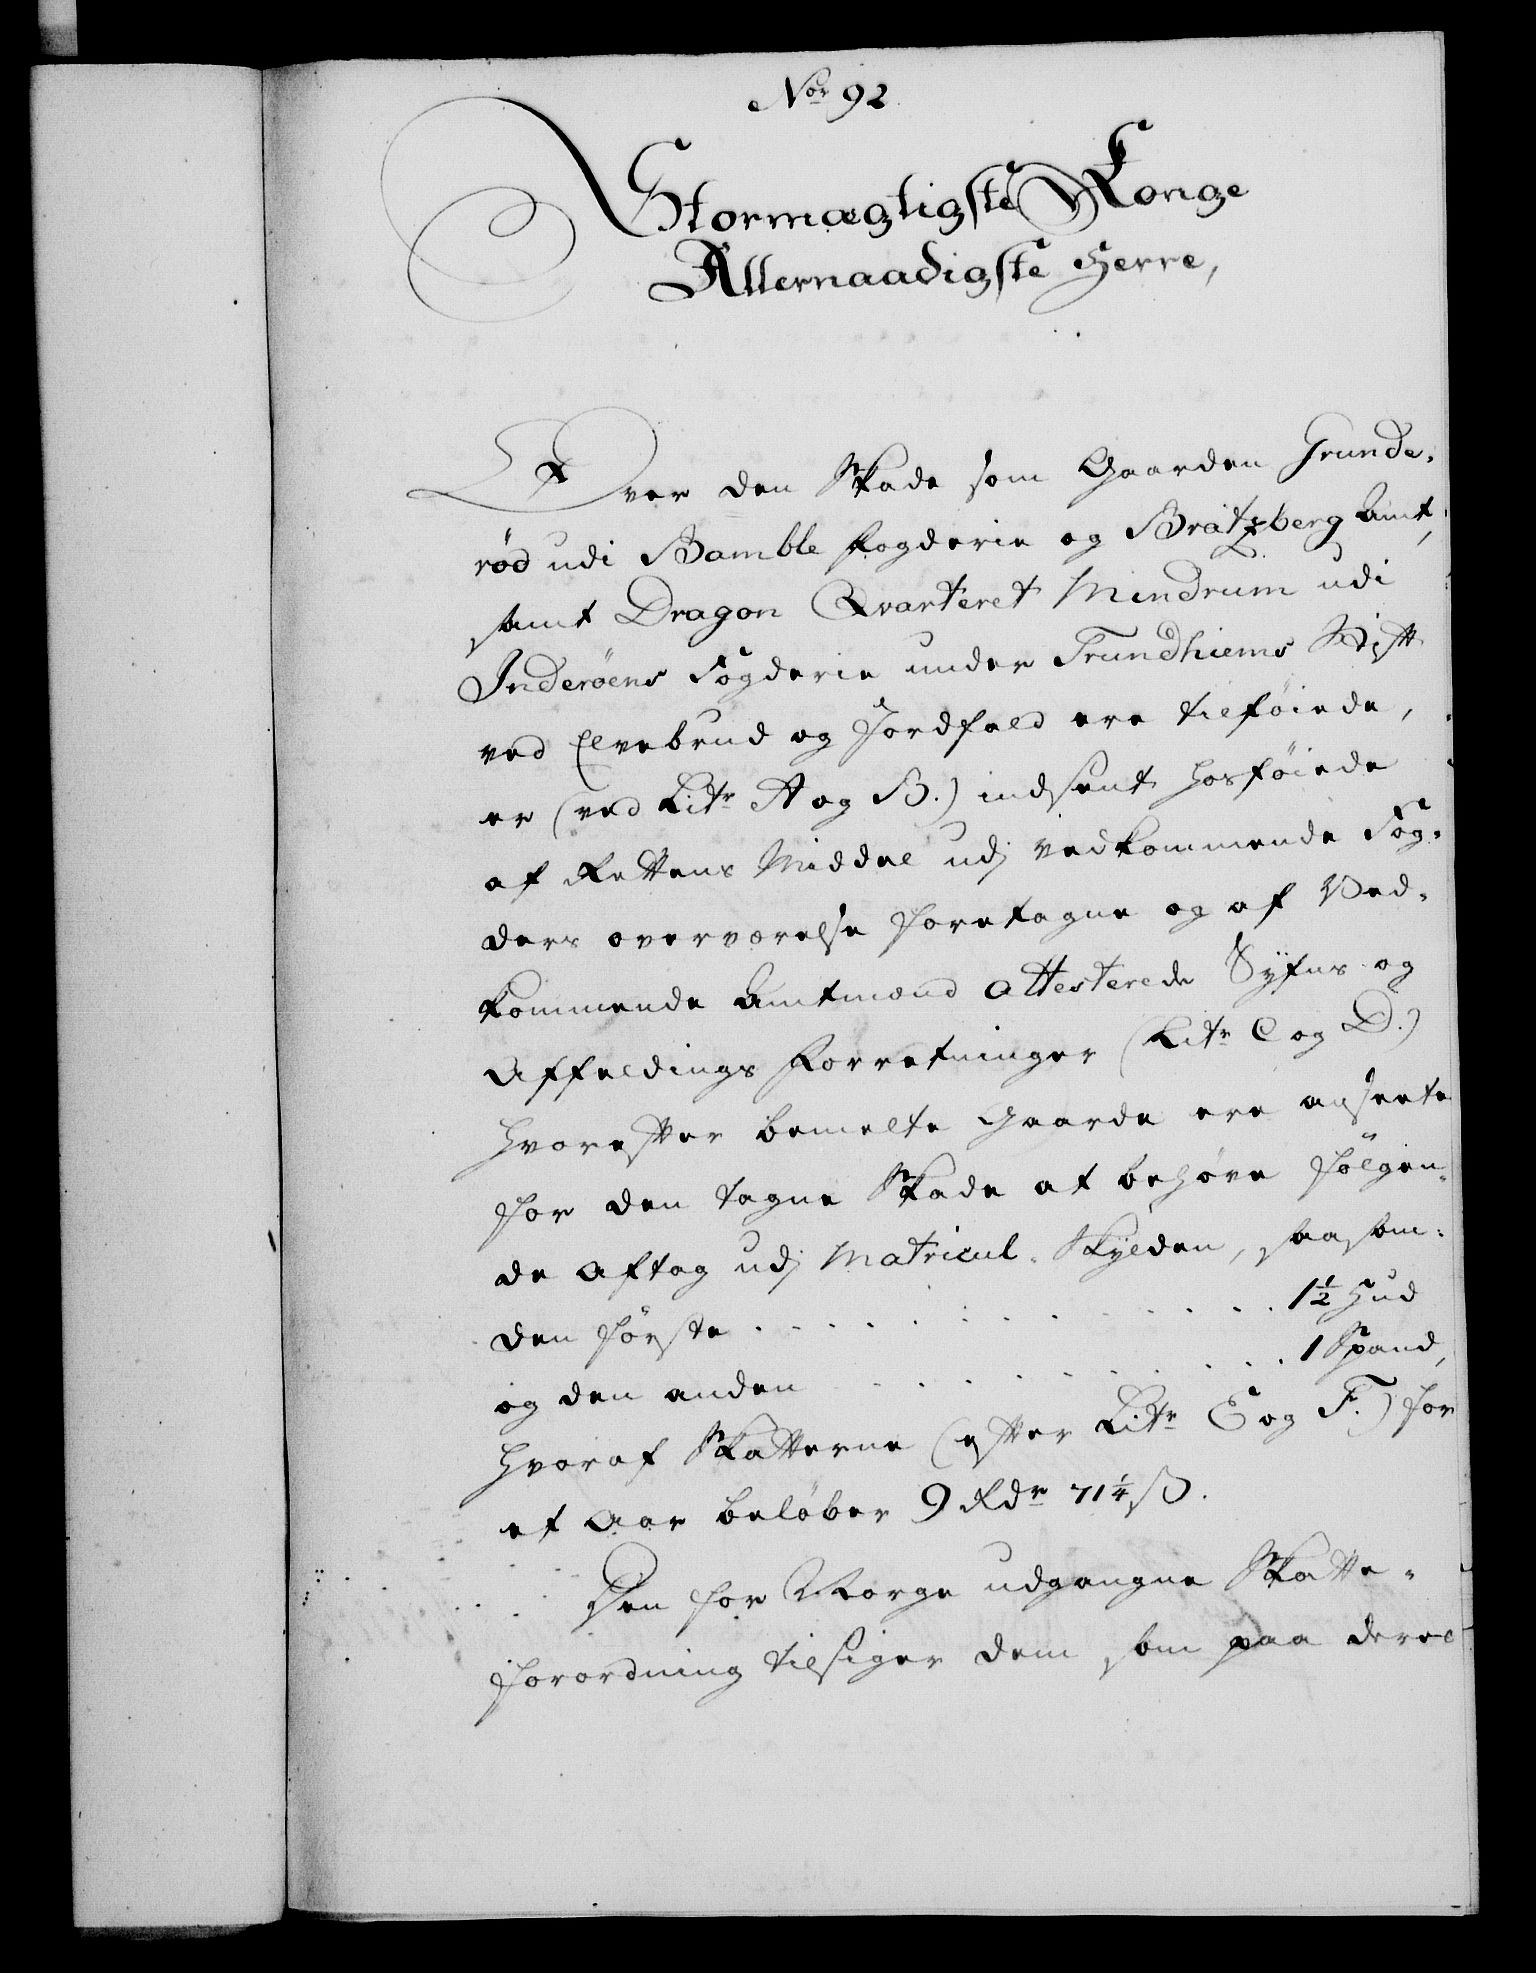 Nor 92
Stormægtigste Konge
Allernaadigste Herre,
Over den Skade som Gaarden Grunde-
rød udi Bamble Fogderie og Bratzberg Amt,
samt Dragon Qvarteret Mindrum udi
Inderøens Fogderie under Trundhiems Stift
ved Elvebrud og Jordfald ere tilføiede,
er (ved Litr A og B.) indsent hosføiede
af Rettens Middel udj vedkommende Fog-
ders overværelse foretagne og af Ved-
kommende Amtmænd attesterede Syfns og
Affældings Forretninger (Litr C og D.)
hvorefter bemelte Gaarde ere anseete
for den tagne Skade at behøve følgen-
de Aftag udj Matricul-Skylden, saasom:
den første . . . . . . . . . . 1 1/2 Hud
og den anden . . . . . . . . . 1 Spand,
hvoraf Skatterne (efter Litr E og F.) for
et Aar beløber 9 Rdr 71 1/4 ß.
Den for Norge udgangne Skatte-
forordning tilsiger dem som paa deres